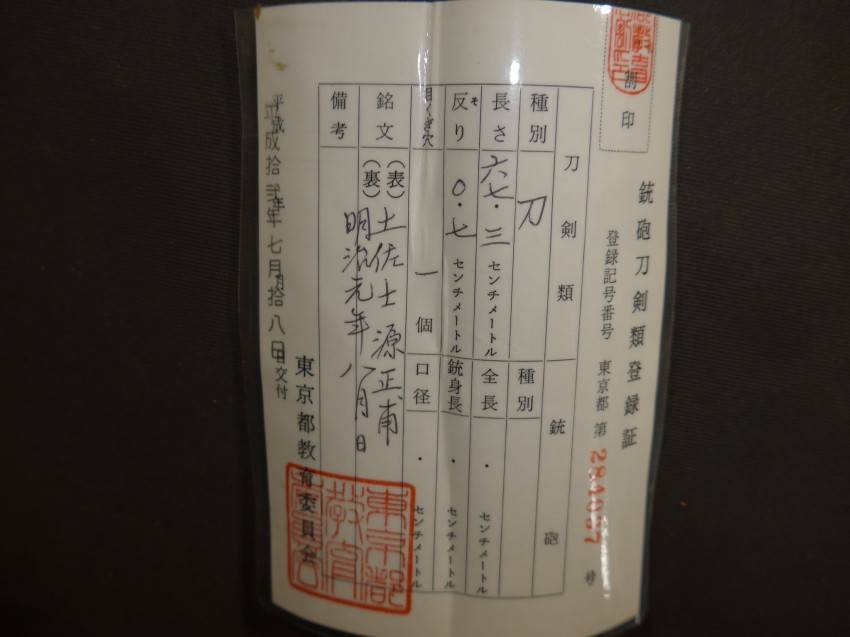 割印
銃砲刀剣類登録証
登録記号番号 東京都 第 284037 号
刀剣類 銃砲
種別 刀 種別
長さ 六七・三 センチメートル 全長 ・ センチメートル
反り 〇・七 センチメートル 銃身長 ・ センチメートル
目くぎ穴 一個 口径 ・ センチメートル
銘文 (表) 土佐士源正甫
(裏) 明治元年八月日
備考
平成拾弐年七月拾八日交付
東京都教育委員会